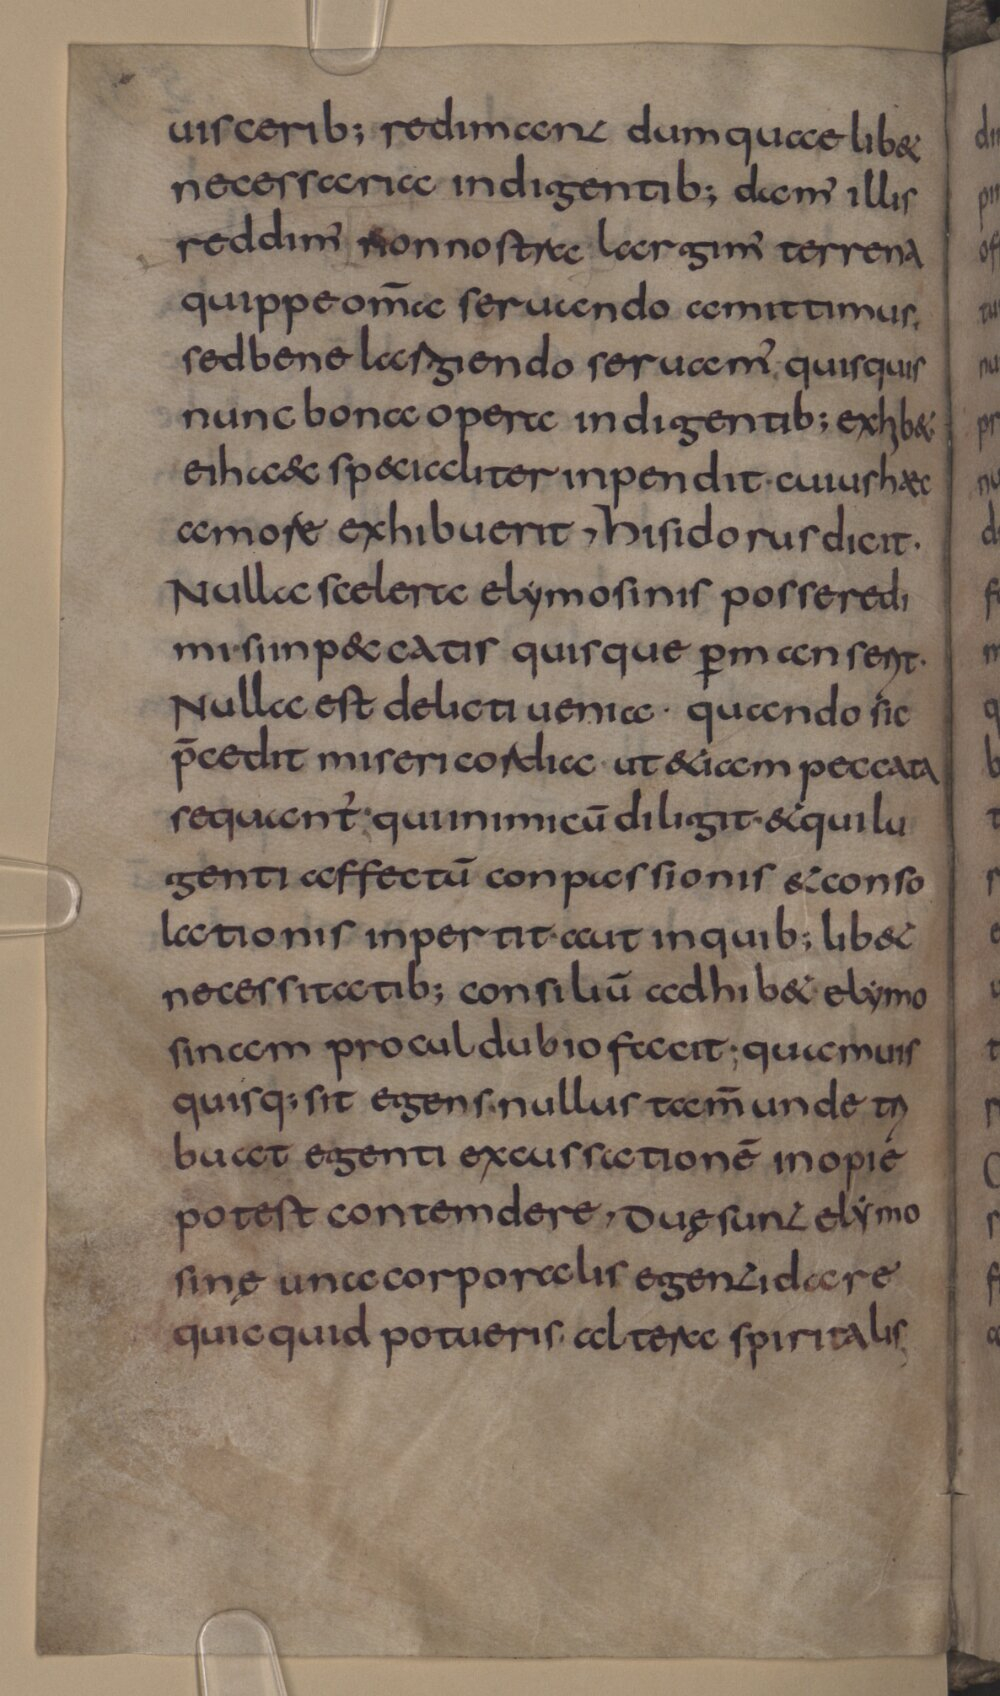 uiscerib; redimant dumquaelib&
necessaria indigentib; dam' illis
reddim' nonnostra largim' terrena
quippeom̄a seruando amittimus.
sedbene largiendo seruam' quisquis
nunc bona opera indigentib; exhib&
eiha& sp&ialiter inpendit· cuiushæc
amore exhibuerit, hisidorus dicit·
Nulla scelera elẏmosinis posseredi
mi·siinp&catis quisque ꝑmanserit·
Nulla est delicti uenia· quando sic
p̄cedit misericordia· ut &iam peccata
sequant᷑· quiinimicū diligit·&quilu
genti affectū conpassionis &conso
lationis inpertit·aut inquib; lib&
necessitatib; consiliū adhib& elẏmo
sinam procul dubio facit; quamuis
quisq; sit egens·nullus tam̄ unde tri
buat egenti excussationē inopie
potest contemdere, Duę sunt elẏmo
sinę una corporalis egentidare
quicquid potueris· altera spiritalis,